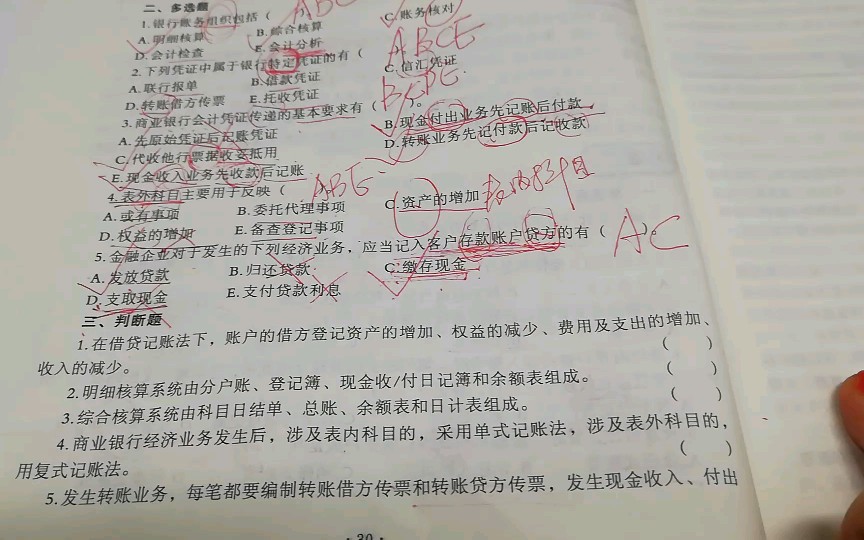 二、多选题
1.银行账务组织包括（ ABC ）。
A.明细核算 B.综合核算 C.账务核对
D.会计检查 E.会计分析
2.下列凭证中属于银行特定凭证的有（ ABCE
A.联行报单 B.借款凭证 C.信汇凭证
D.转账借方传票 E.托收凭证
3.商业银行会计凭证传递的基本要求有（ BCDE ）。
A.先原始凭证后记账凭证 B.现金付出业务先记账后付款
C.代收他行票据收妥抵用 D.转账业务先记付款后记收款
E.现金收入业务先收款后记账
4.表外科目主要用于反映（ ABE
A.或有事项 B.委托代理事项 C.资产的增加 表内科目
D.权益的增加 E.备查登记事项
5.金融企业对于发生的下列经济业务，应当记入客户存款账户贷方的有（ AC ）。
A.发放贷款 B.归还贷款 C.缴存现金
D.支取现金 E.支付贷款利息
三、判断题
1.在借贷记账法下，账户的借方登记资产的增加、权益的减少、费用及支出的增加、
收入的减少。 （ ）
2.明细核算系统由分户账、登记簿、现金收/付日记簿和余额表组成。 （ ）
3.综合核算系统由科目日结单、总账、余额表和日计表组成。 （ ）
4.商业银行经济业务发生后，涉及表内科目的，采用单式记账法，涉及表外科目的，
用复式记账法。 （ ）
5.发生转账业务，每笔都要编制转账借方传票和转账贷方传票，发生现金收入、付出
·30·